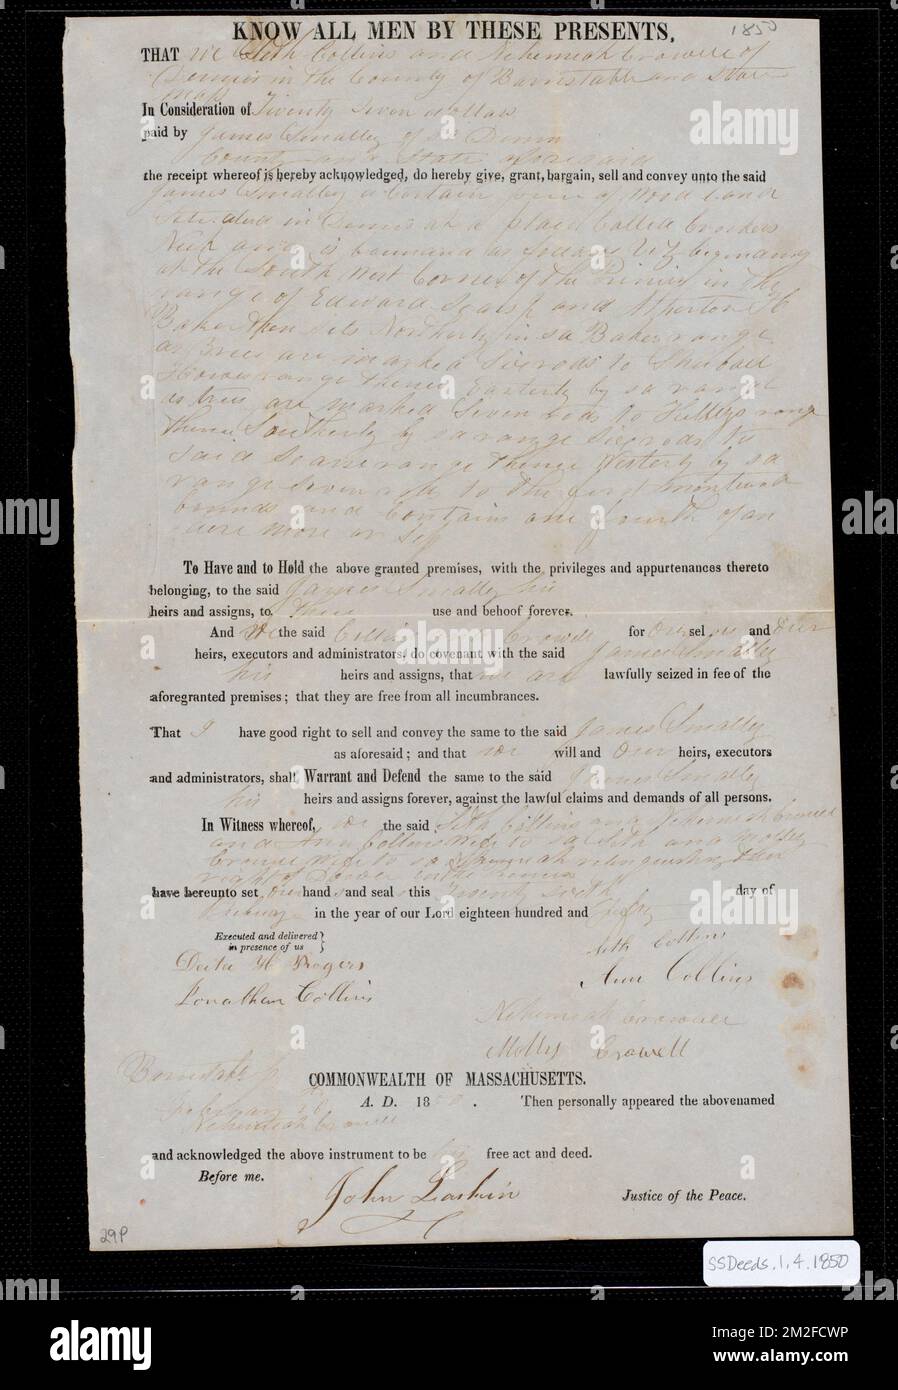 1850
KNOW ALL MEN BY THESE PRESENTS,
THAT We Seth Collins and Nehemiah Crowell of
Dennis in the County of Barnstable and State
Mass
In Consideration of Twenty Seven dollars
paid by James Smalley of Dennis
County and State aforesaid
the receipt whereof is hereby acknowledged, do hereby give, grant, bargain, sell and convey unto the said
James Smalley a Certain piece of Wood Land
Situated in Dennis at a place Called Crookers
Neck and is bounded as follows Viz beginning
at the South West Corner of the Primis in the
range of Edward Sears and
Baker then sets Northerly in sd Baker range
as trees are marked Six rods to Shubael
range thence Easterly by sd range
as trees are marked Seven rods to Kelleys range
thence Southerly by sd range Six rods to
said Sears range thence Westerly by sd
range Seven rods to the first mentioned
bounds and Contains one fourth of an
acre more or less
To Have and to Hold the above granted premises, with the privileges and appurtenances thereto
belonging, to the said James Smalley his
heirs and assigns, to their use and behoof forever.
And We the said Collins Crowell for Our selves and Our
heirs, executors and administrators, do covenant with the said James Smalley
his heirs and assigns, that we are lawfully seized in fee of the
aforegranted premises; that they are free from all incumbrances.
That I have good right to sell and convey the same to the said James Smalley
as aforesaid; and that we will and Our heirs, executors
and administrators, shall Warrant and Defend the same to the said James Smalley
his heirs and assigns forever, against the lawful claims and demands of all persons.
In Witness whereof, we the said Seth Collins and Nehemiah Crowell
and Ann Collins Wife to sd Seth and Molly
Crowell Wife to sd Nehemiah relinquishing their
right of Dower in the Primis
have hereunto set Our hands and seals this Twenty sixth day of
February in the year of our Lord eighteen hundred and Fifty
Executed and delivered
in presence of us
Seth Collins
H Rogers
Ann Collins
Jonathan Collins
Nehemiah Crowell
Molly Crowell
Barnstable ss
COMMONWEALTH OF MASSACHUSETTS.
February 26 A. D. 1850. Then personally appeared the abovenamed
Nehemiah Crowell
and acknowledged the above instrument to be his free act and deed.
Before me.
John Justice of the Peace.
29P
SSDeeds.1.4.1850
alamy
Image ID: 2M2FCWP
www.alamy.com